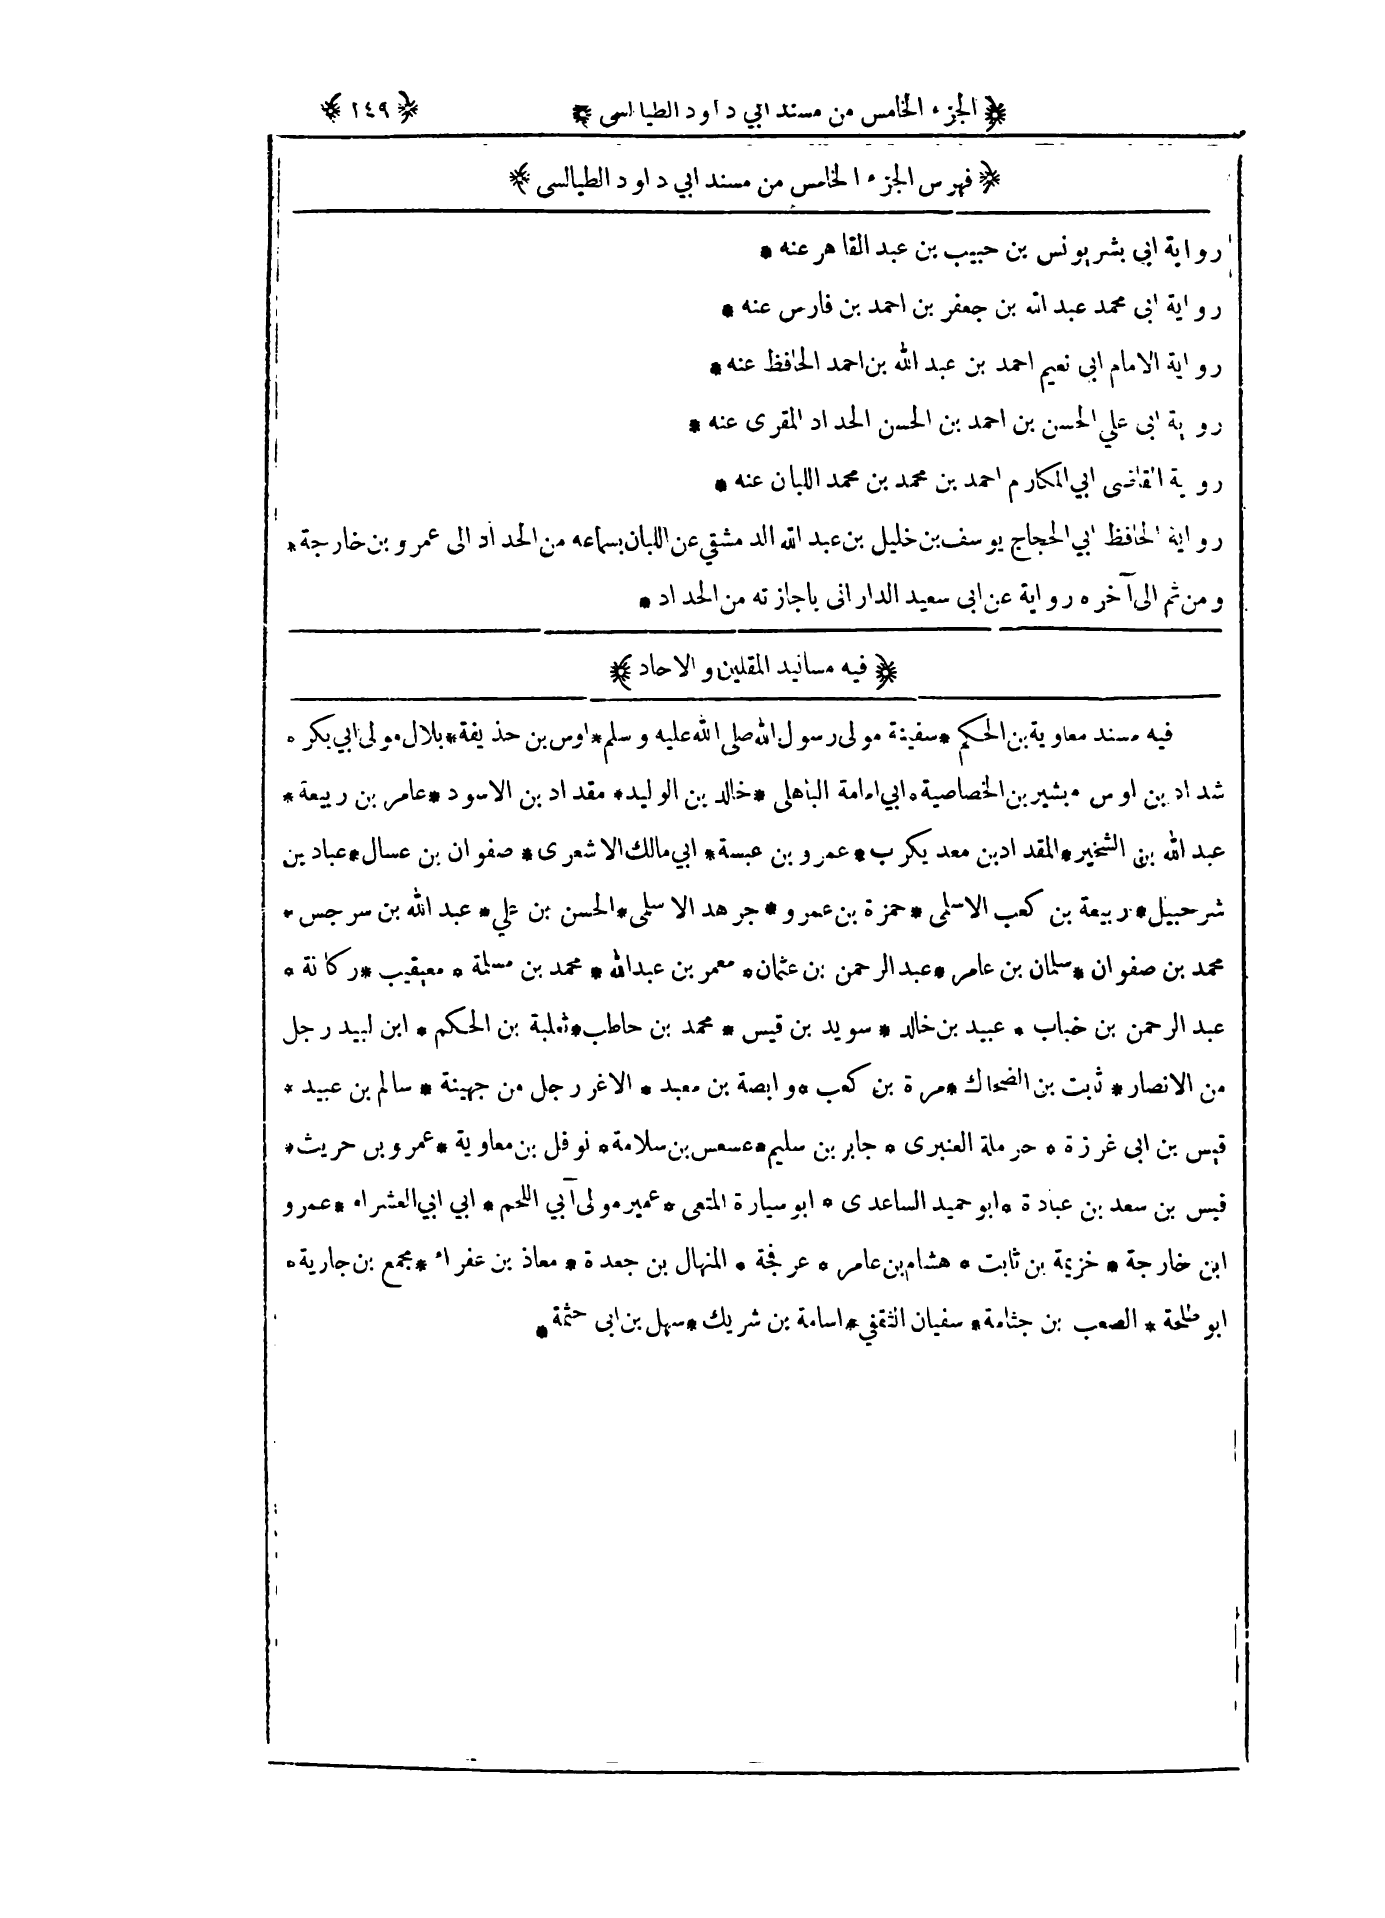 ﴿ الجزء الخامس من مسند ابي داود الطيالسى ﴾ ﴿ ١٤٩ ﴾
﴿ فهرس الجزء الخامس من مسند ابي داود الطيالسى ﴾
رواية ابي بشر يونس بن حبيب بن عبد القاهر عنه *
رواية ابى محمد عبد الله بن جعفر بن احمد بن فارس عنه *
رواية الامام ابي نعيم احمد بن عبد الله بن احمد الحافظ عنه *
رواية ابى علي الحسن بن احمد بن الحسن الحداد المقرى عنه *
رواية القاضى ابي المكارم احمد بن محمد بن محمد اللبان عنه *
رواية الحافظ ابي الحجاج يوسف بن خليل بن عبد الله الدمشقي عن اللبان بسماعه من الحداد الى عمرو بن خارجة *
ومن ثم الى آخره رواية عن ابى سعيد الدارانى باجازته من الحداد *
﴿ فيه مسانيد المقلين والاحاد ﴾
فيه مسند معاوية بن الحكم * سفينة مولى رسول الله صلى الله عليه وسلم * اوس بن حذيفة * بلال مولى ابي بكر *
شداد بن اوس * بشير بن الخصاصية * ابي امامة الباهلى * خالد بن الوليد * مقداد بن الاسود * عامر بن ربيعة *
عبد الله بن الشخير * المقداد بن معديكرب * عمرو بن عبسة * ابي مالك الاشعرى * صفوان بن عسال * عباد بن
شرحبيل * ربيعة بن كعب الاسلمى * حمزة بن عمرو * جرهد الاسلمى * الحسن بن علي * عبد الله بن سرجس *
محمد بن صفوان * سلمان بن عامر * عبد الرحمن بن عثمان * معمر بن عبدالله * محمد بن مسلمة * معيقيب * ركانة *
عبد الرحمن بن خباب * عبيد بن خالد * سويد بن قيس * محمد بن حاطب * ثعلبة بن الحكم * ابن لبيد رجل
من الانصار * ثابت بن الضحاك * مرة بن كعب * وابصة بن معبد * الاغر رجل من جهينة * سالم بن عبيد *
قيس بن ابى غرزة * حرملة العنبرى * جابر بن سليم * عسعس بن سلامة * نوفل بن معاوية * عمرو بن حريث *
قيس بن سعد بن عبادة * ابو حميد الساعدى * ابو سيارة المتعى * عمير مولى آبي اللحم * ابي ابي العشراء * عمرو
ابن خارجة * خزيمة بن ثابت * هشام بن عامر * عرفجة * المنهال بن جعدة * معاذ بن عفراء * مجمع بن جارية *
ابو طلحة * الصعب بن جثامة * سفيان الثقفي * اسامة بن شريك * سهل بن ابى حثمة *